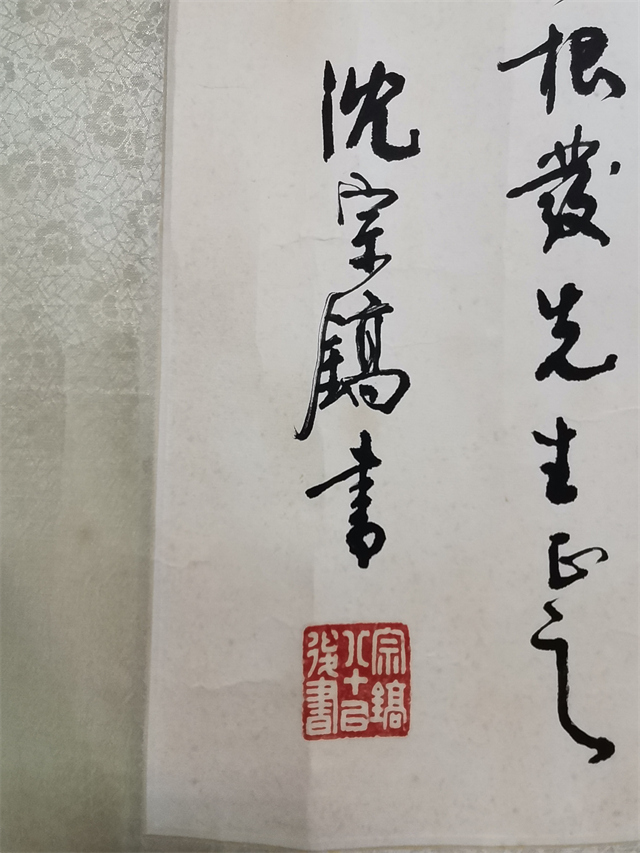 根發先生正之
沈宗鎬書
宗鎬
八十以
後書